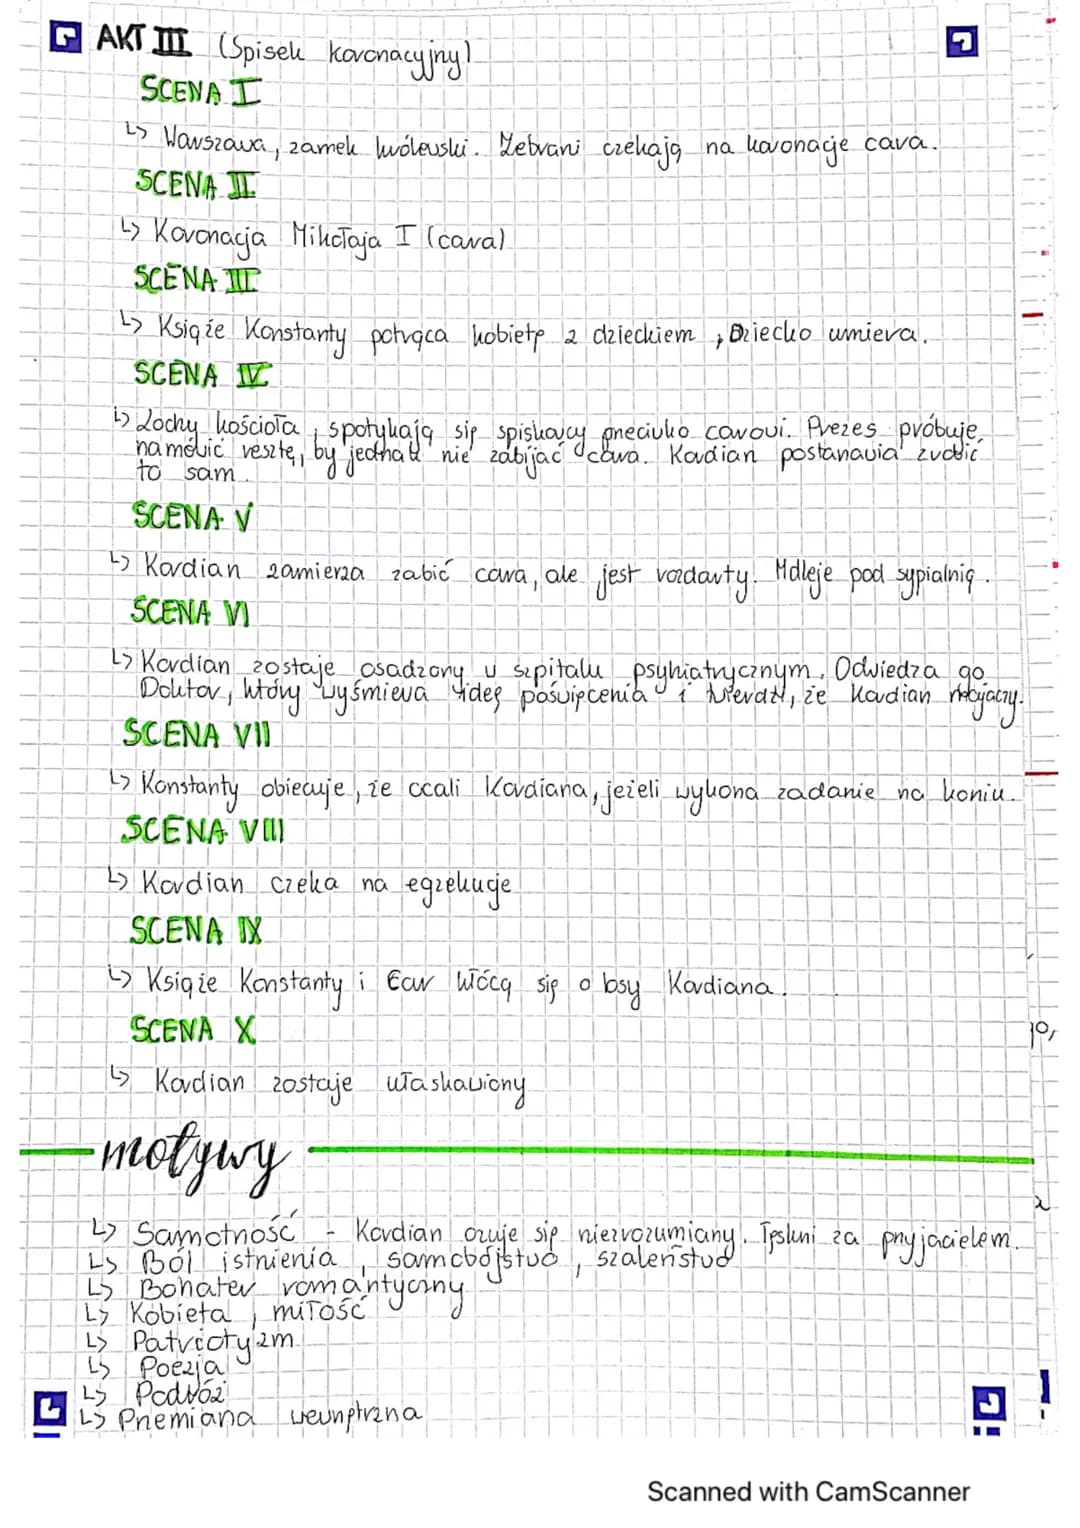 AKT III (Spisek koronacyjny)
SCENA I
↳ Warszawa, zamek królewski. Zebrani czekają na koronację cara.
SCENA II
↳ Koronacja Mikołaja I (cara)
SCENA III
↳ Książe Konstanty potrąca kobietę z dzieckiem, Dziecko umiera.
SCENA IV
↳ Lochy kościoła, spotykają się spiskowcy przeciwko carowi. Prezes próbuje
namówić resztę, by jednak nie zabijać cara. Kordian postanawia zrobić
to sam.
SCENA V
↳ Kordian zamierza zabić cara, ale jest rozdarty. Mdleje pod sypialnią.
SCENA VI
↳ Kordian zostaje osadzony w szpitalu psyhiatrycznym. Odwiedza go
Doktor, który wyśmiewa ideę poświęcenia i twierdzi, że Kordian majaczy.
SCENA VII
↳ Konstanty obiecuje, że ocali Kordiana, jeżeli wykona zadanie na koniu.
SCENA VIII
↳ Kordian czeka na egzekucję
SCENA IX
↳ Książe Konstanty i Car kłócą się o losy Kordiana.
SCENA X
↳ Kordian zostaje ułaskawiony
motywy
↳ Samotność - Kordian czuje się niezrozumiany. Tęskni za przyjacielem.
↳ Ból istnienia, samobójstwo, szaleństwo
↳ Bohater romantyczny
↳ Kobieta, miłość
↳ Patriotyzm
↳ Poezja
↳ Podróż
↳ Przemiana wewnętrzna
Scanned with CamScanner